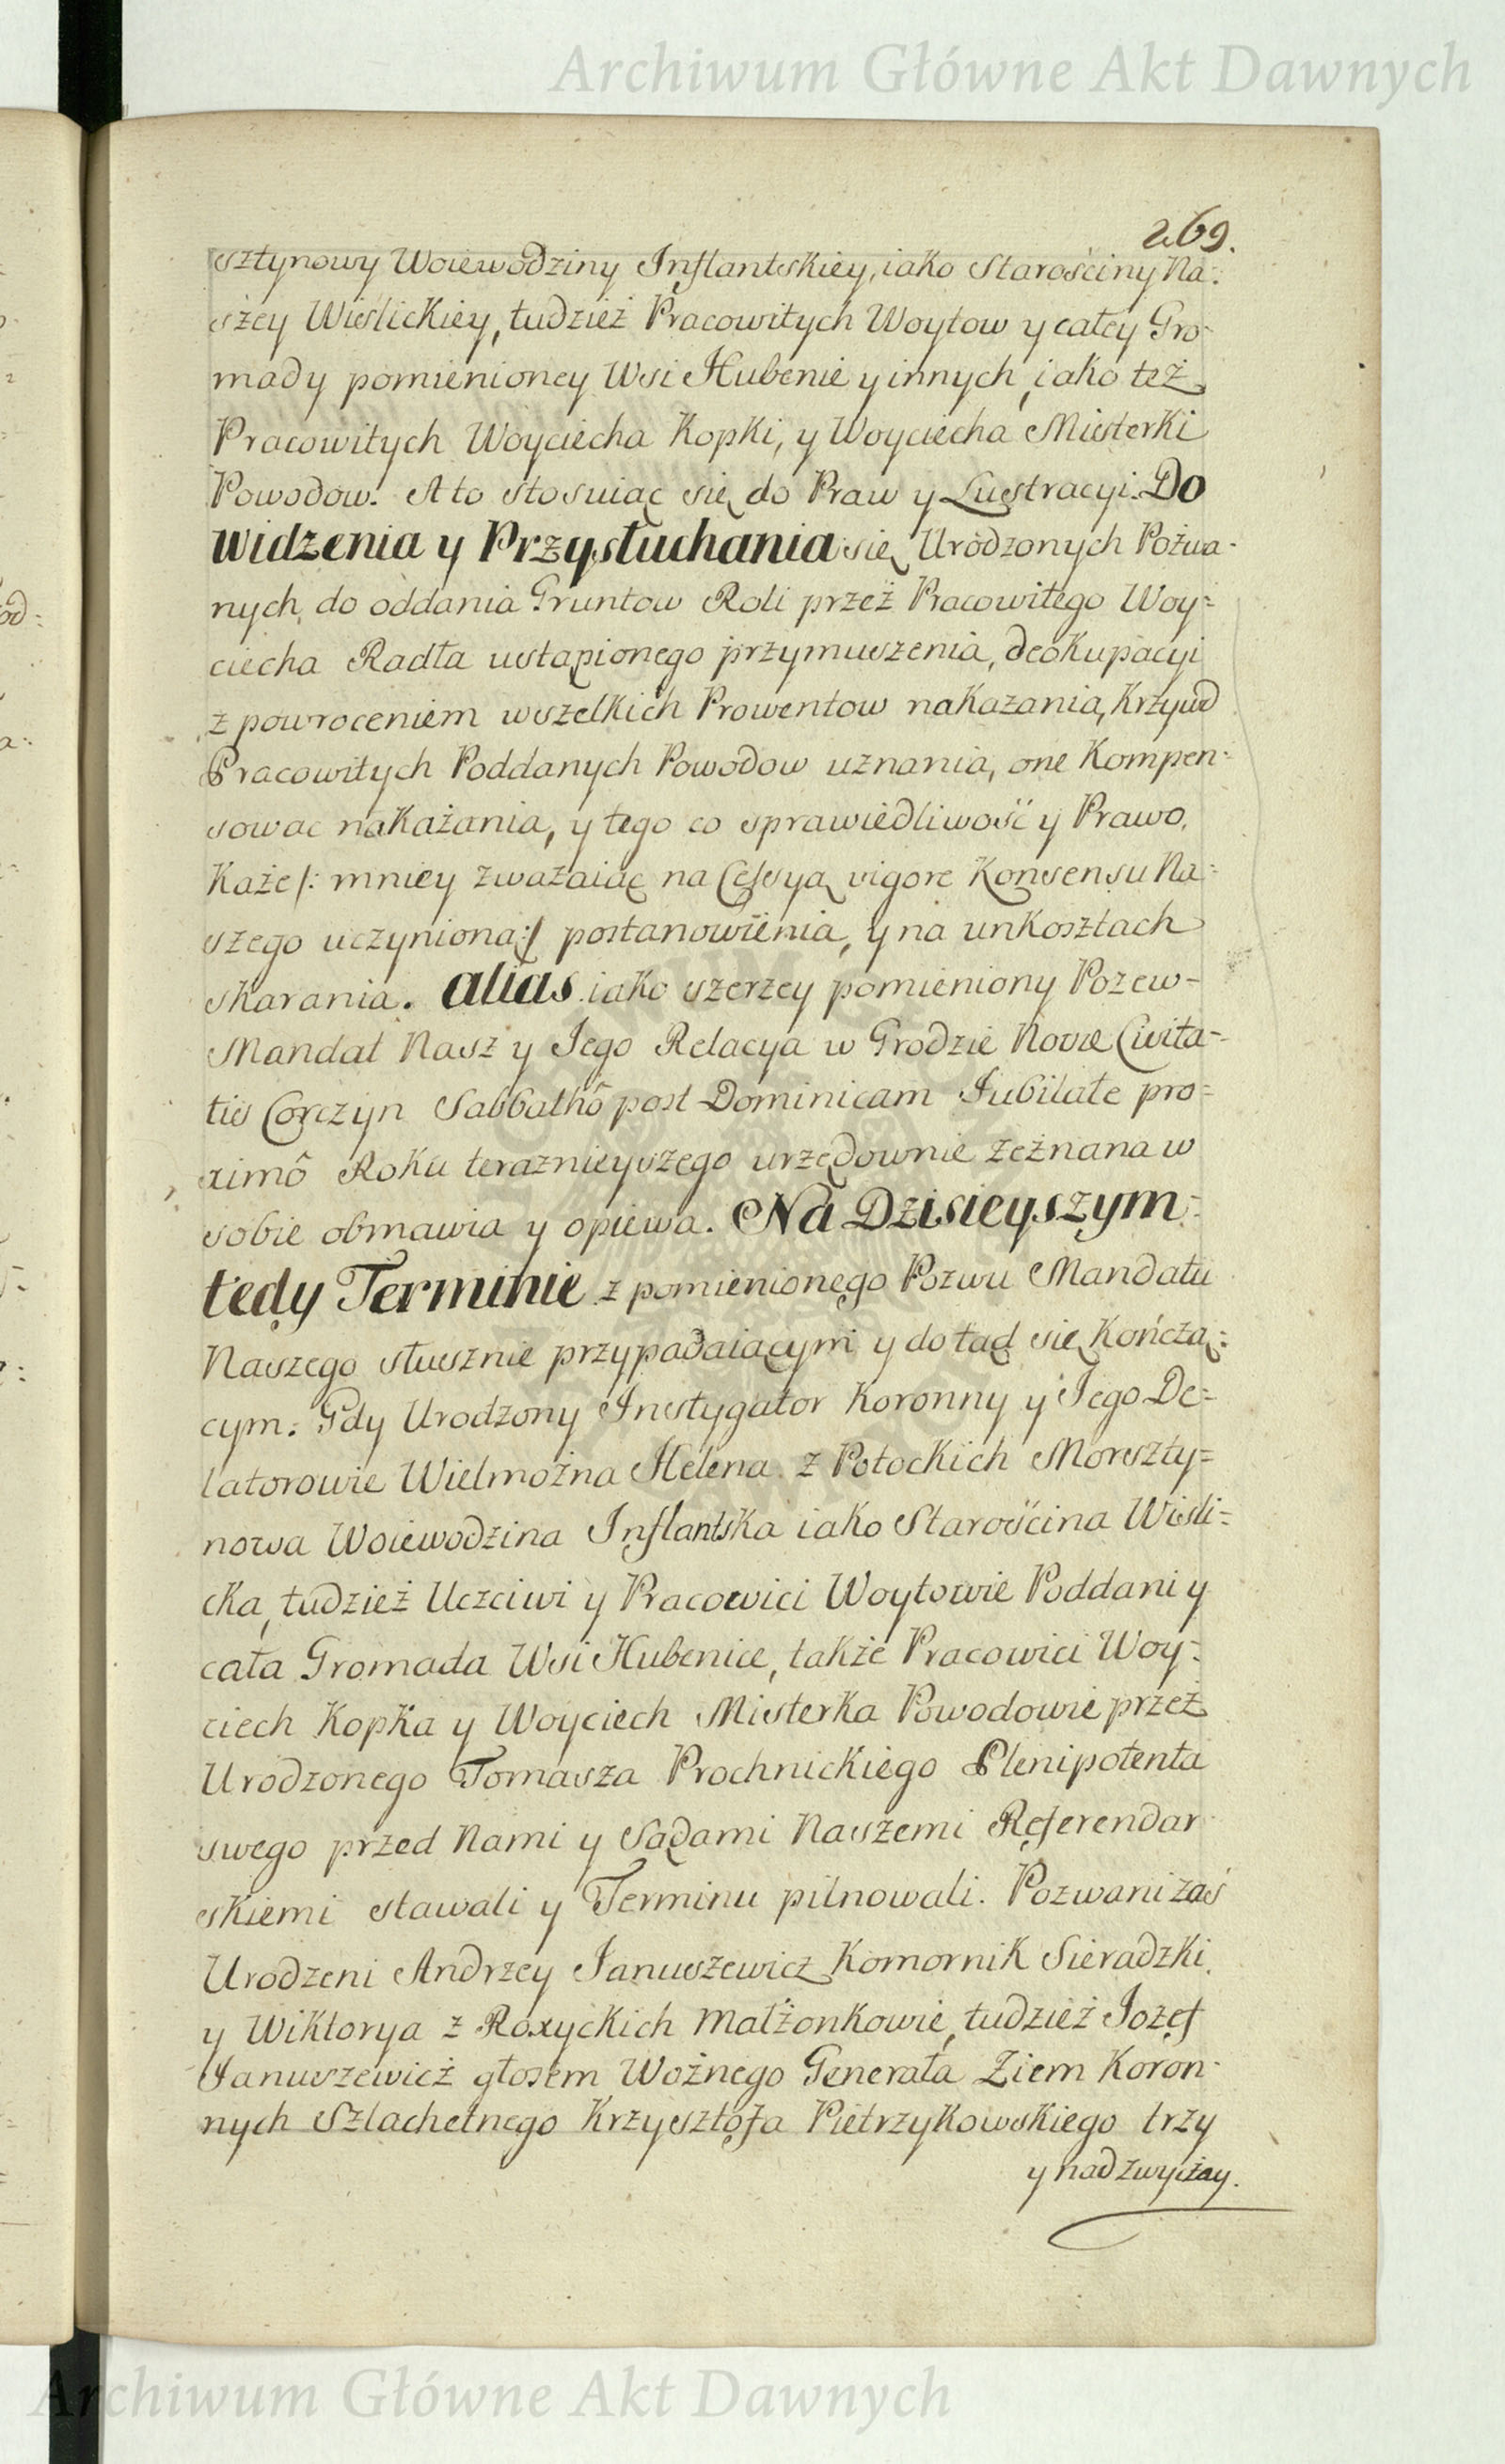 Archiwum Główne Akt Dawnych
269.
sztynowy Woiewodziny Inflantskiey, iako Starościny Na:
szey Wiślickiey, tudzież Pracowitych Woytow y całey Gro-
mady pomienioney Wsi Hubenie y innych, iako też
Pracowitych Woyciecha Kopki, y Woyciecha Misterki
Powodow. A to stosuiąc się do Praw y Lustracyi. Do
widzenia y Przysłuchania się Urodzonych Pozwa-
nych, do oddania Gruntow Roli przez Pracowitego Woy=
ciecha Radła ustąpionego przymuszenia, deokupacyi
z powroceniem wszelkich Prowentow nakazania, Krzywd
Pracowitych Poddanych Powodow uznania, one Kompen-
sowac nakażania, y tego co sprawiedliwość y Prawo.
Każe /: mniey zważaiąc na Cessyą vigore Konsensu Na:
szego uczynioną :/ postanowienia, y na unkosztach
skarania. alias iako szerzey pomieniony Pozew-
Mandat Nasz y Iego Relacya w Grodzie Novæ Civita-
tis Corczyn Sabbathô post Dominicam Iubilate pro=
ximô Roku teraznieyszego urzędownie zeżnana w
sobie obmawia y opiewa. Na Dzisieyszym
tedy Terminie z pomienionego Pozwu Mandatu
Naszego słusznie przypadaiącym y do tąd się Kończą:
cym: Gdy Urodzony Instygator Koronny y Iego De=
latorowie Wielmożna Helena z Potockich Morszty=
nowa Woiewodzina Inflantska iako Starościna Wiśli=
cka, tudzież Uczciwi y Pracowici Woytowie Poddani y
cała Gromada Wsi Hubenice, także Pracowici Woy=
ciech Kopka y Woyciech Misterka Powodowie przez
Urodzonego Tomasza Prochnickiego Plenipotenta
swego przed Nami y Sądami Naszemi Referendar
skiemi stawali y Terminu pilnowali. Pozwani zaś
Urodzeni Andrzey Ianuszewicz Komornik Sieradzki
y Wiktorya z Roxyckich Małżonkowie, tudzież Iozef
Ianuszewicż głosem Woźnego Generała Ziem Koron-
nych Szlachetnego Krzysztofa Pietrzykowskiego trzy
y nad zwyczay.
Archiwum Główne Akt Dawnych